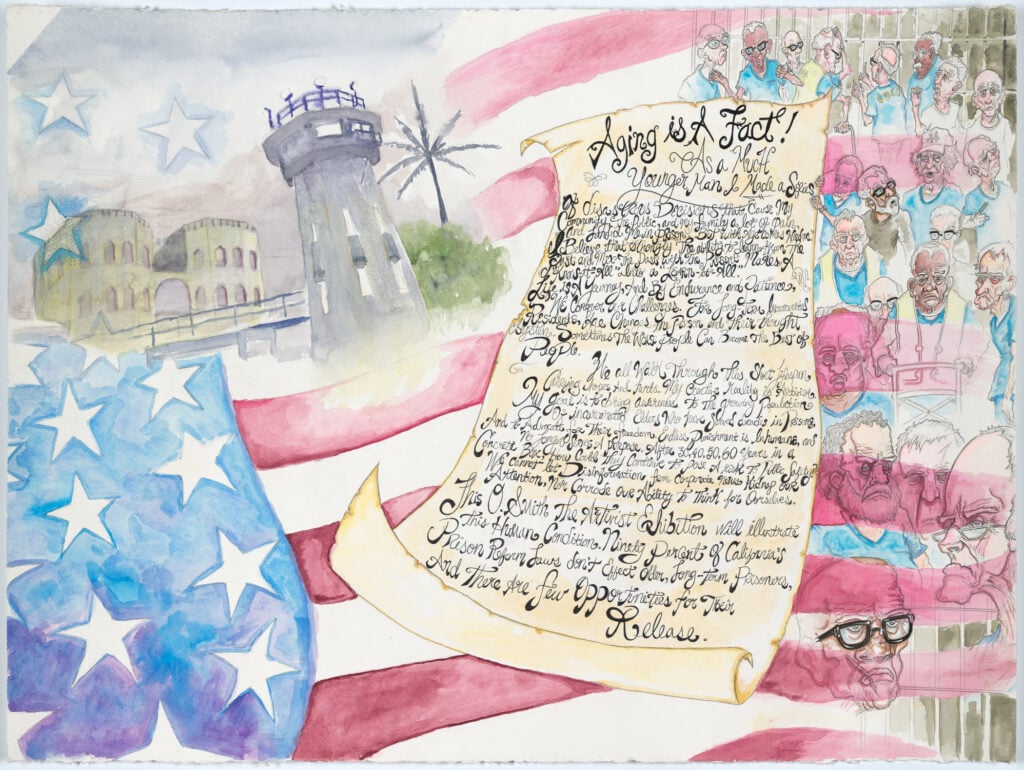 Aging is A Fact!
As a Much
Younger Man I Made a Series
of Disastrous Decisions that Cause My
Community, the Public, and my Family a lot of Pain,
and
I Believe that is the ability to learn from the
Past and the Past with the Present Makes A
"Know-It-All" into a "Learn-It-All"
Life is A Journey, And By Endurance and Patience,
We Conquer Our Challenges. For Long Term Incarcerated
Residents, Age Changes the Person and Their Thought
Sometimes The Worst People Can Become The Best of
People.
We all Walk Through This Short Lifespan
Carrying Hopes and Hurts. My Creative Reality is Activism
My goal is to bring awareness to the growing Population
Of incarcerated Elders Who have Served decades in Prisons,
And to Advocate for Their Freedom. Endless Punishment is Inhumane, and
No Longer Serves A Purpose. After 30, 40, 50, 60 Years in a
Concrete Box, They Continue to Pose A Risk to Public Safety?
We Cannot let Disinformation from Corporate News Kidnap Our
Attention, Nor Corrode our Ability to Think for Ourselves.
This O. Smith The Artivist Exhibition will illustrate
This Human Condition. Ninety Percents of California's
Prison Reform Laws don't Effect Older, Long-term Prisoners,
And There Are few Opportunities for Their
Release.